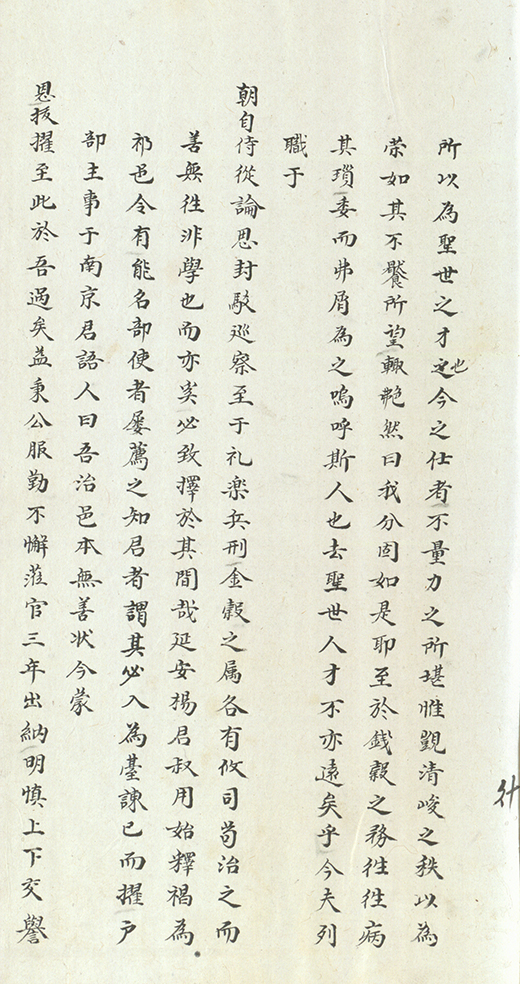 所以為聖世之才也今之仕者不量力之所堪惟覬清峻之秩以為
荣如其不饜所望輙艴然曰我分固如是耶至於錢穀之務徃徃病
其瑣委而弗屑為之嗚呼斯人也去聖世人才不亦遠矣乎今夫列
職于
朝自侍從論思封駁巡察至于礼楽兵刑金穀之属各有攸司苟治之而
善無徃非學也而亦奚必致擇於其間哉延安楊君叔用始釋褐為
祁邑令有能名部使者屡薦之知君者謂其必入為臺諫已而擢户
部主事于南京君語人曰吾治邑本無善状今蒙
恩抜擢至此於吾過矣益秉公服勤不懈蒞官三年出納明慎上下交譽